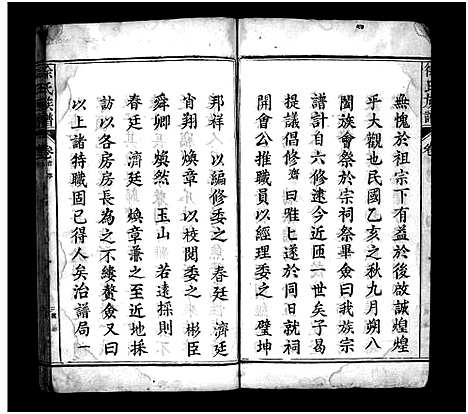 無愧於祖宗下有益於後啟誠煌煌
乎大觀也民國乙亥之秋九月朔八
闔族會祭於宗祠祭畢僉曰我族宗
譜計自六修逮今近匝一世矣子曷
提議續諸僉曰雅上遂於十月初吉
開會公推職員以經理委之 璧坤
邦祥 以編修委之 春廷 濟廷
肯翔 煥章 以校閱委之 彬臣
舜卿 煥然 玉山 若遠採則
春廷 濟廷 煥章兼之至近地採
訪以各房房長為之不縷贅僉又曰
以上諸特職固已得人矣治譜局一
徐氏族譜
卷